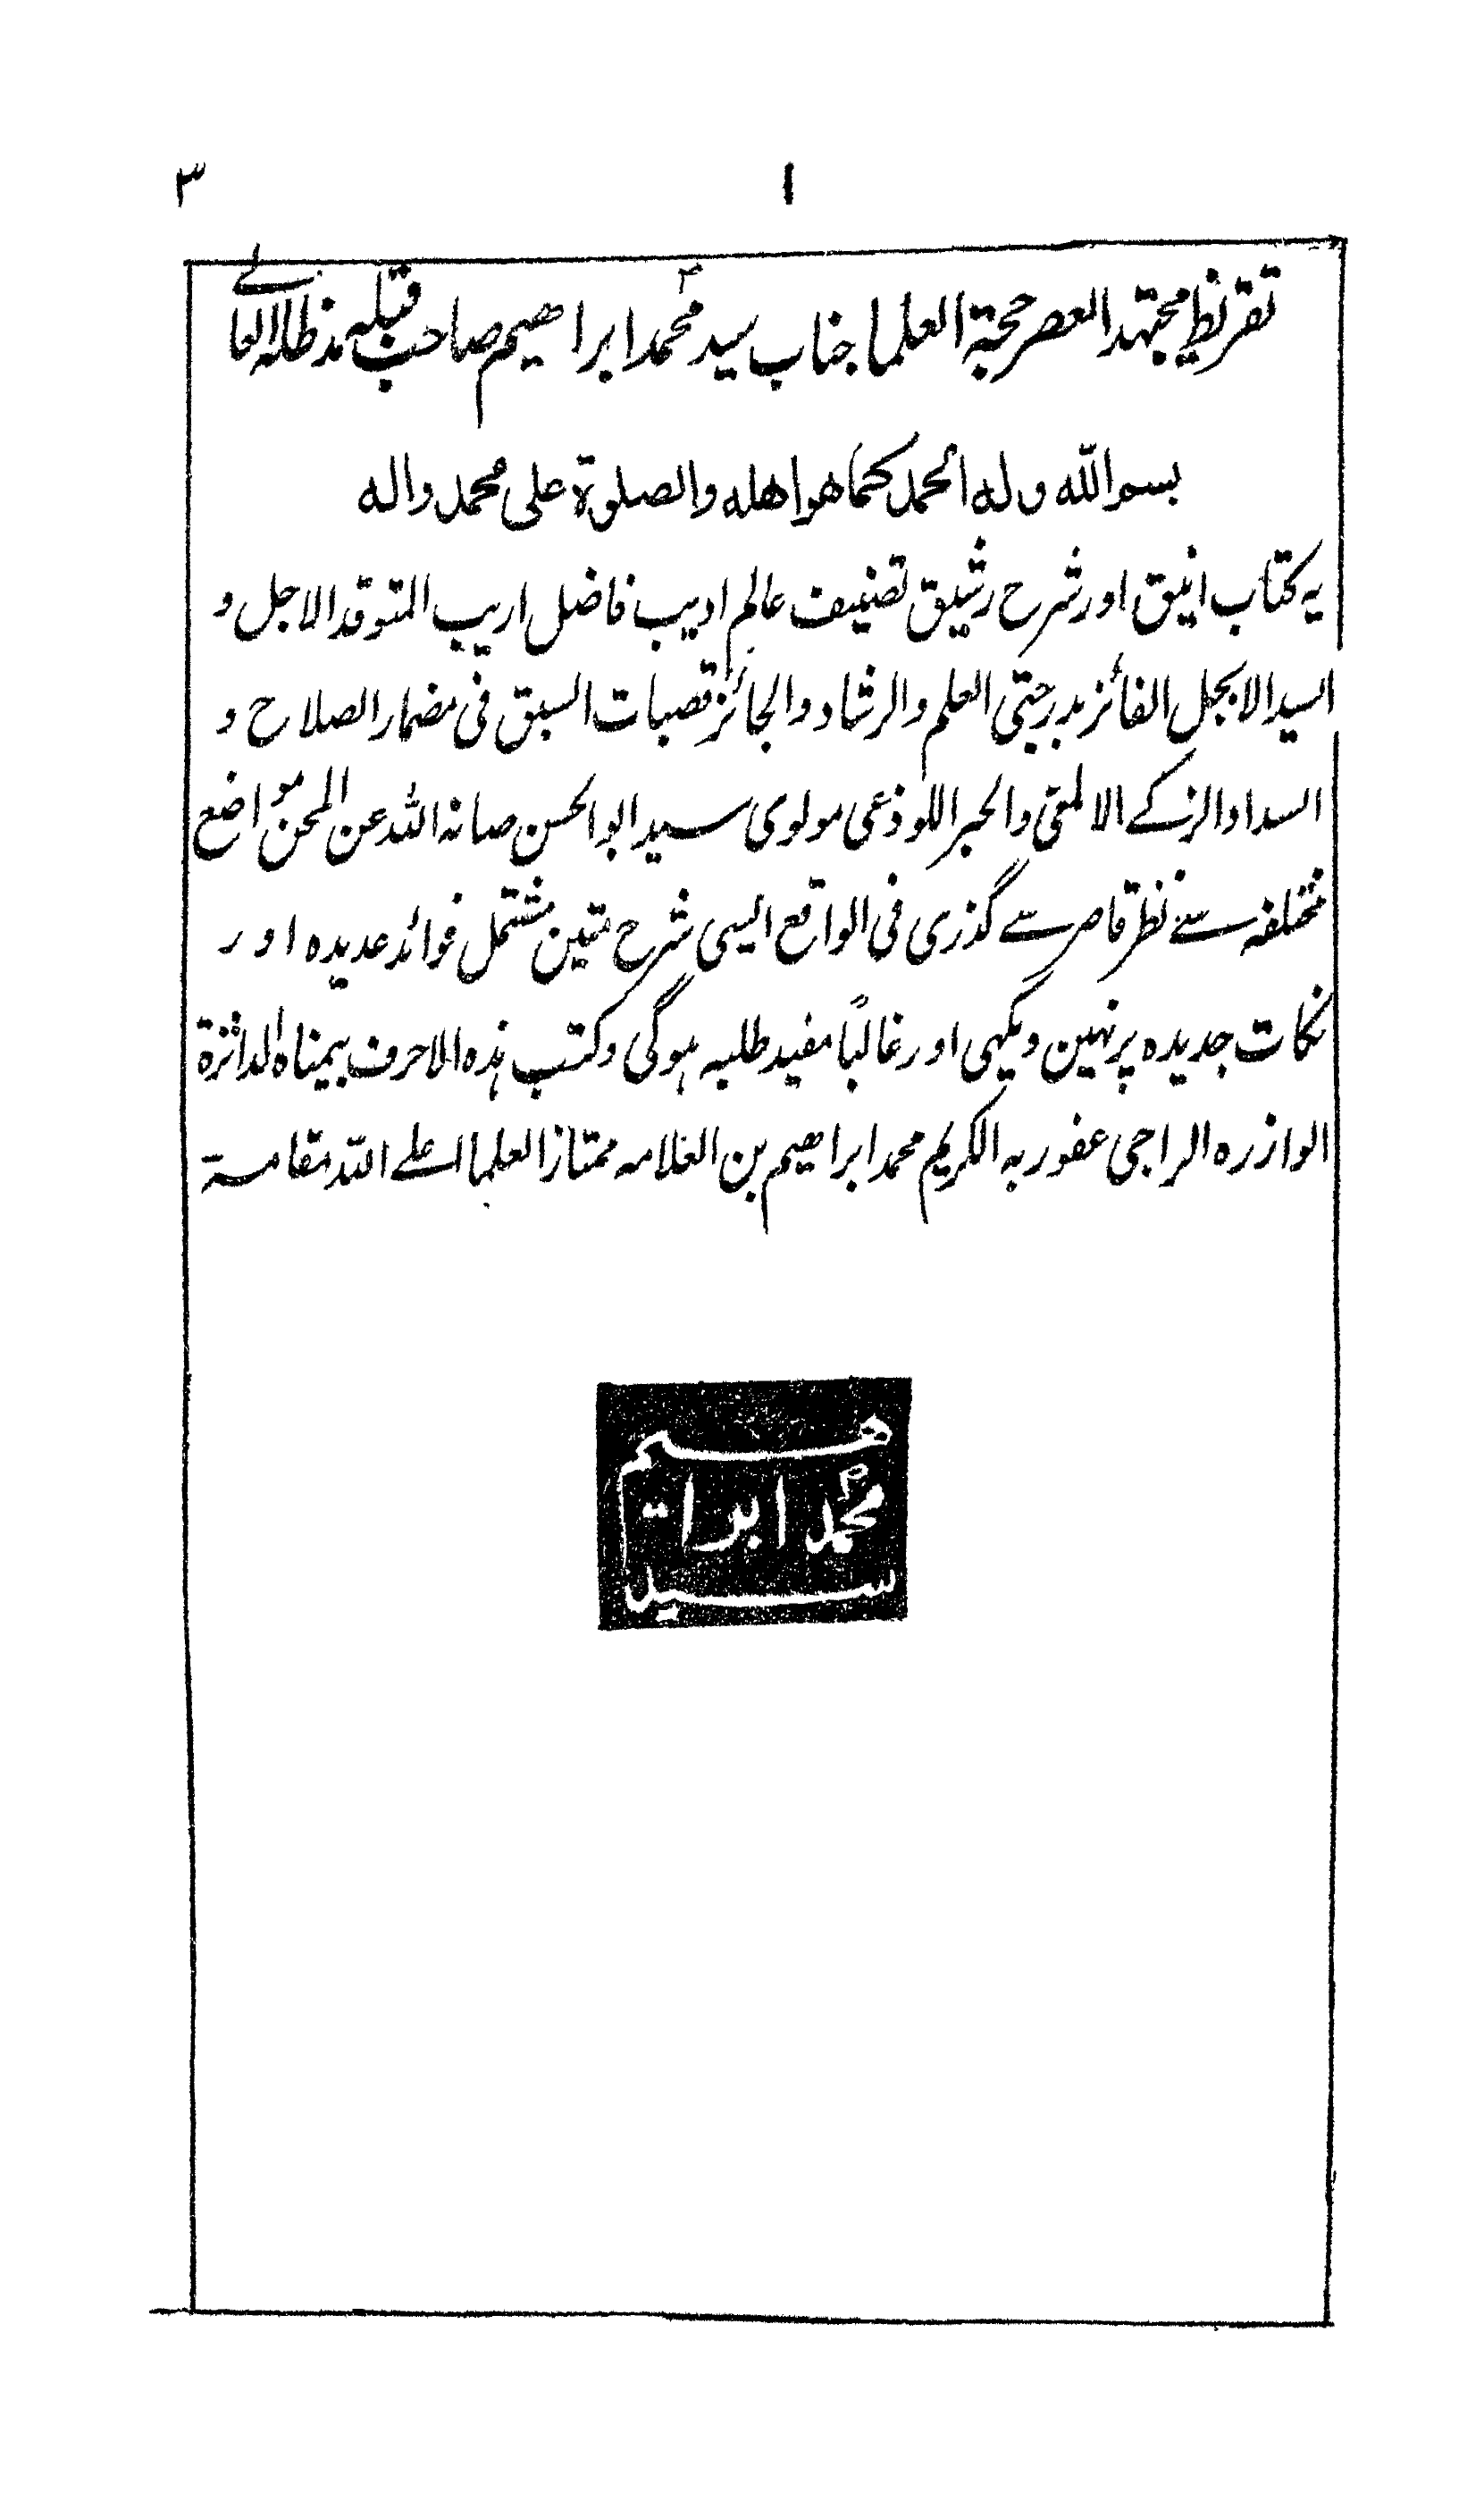 ۱ ۳
تقریظ مجتہد العصر حجة العلما جناب سید محمد ابراھیم صاحب قبلہ مد ظلہ العالے
بسم الله وله الحمد كما هو اهله والصلوة على محمد واله
یہ کتاب انیق اور شرح رشیق تصنیف عالم ادیب فاضل اریب المتوقد الاجل و
السید الابجل الفائز بدرجتی العلم والرشاد والحائز قصبات السبق فی مضمار الصلاح و
السداد الزکے الالمعی والحبر اللوذعی مولوی سید ابو الحسن صانہ اللہ عن المحن مواضع
مختلفہ سے نظر قاصر سے گذری فی الواقع ایسی شرح متین مشتمل فوائد عدیدہ اور
نکات جدیدہ پر نہین دیکہی اور غالبًا مفید طلبہ ہوگی وکتب ہذہ الاحرف بیمناہ الداثرة
الوازرہ الراجی عفو ربہ الکریم محمد ابراھیم بن العلامہ ممتاز العلما اعلے اللہ مقامہ
سید محمد ابراہیم